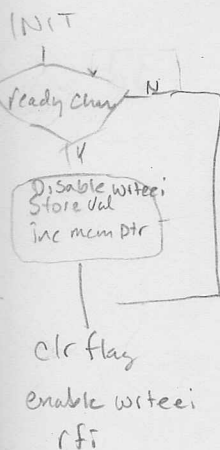 INIT
ready char
N
Y
Disable wrteei
Store Val
inc mem ptr
clr flag
enable wrteei
rfi